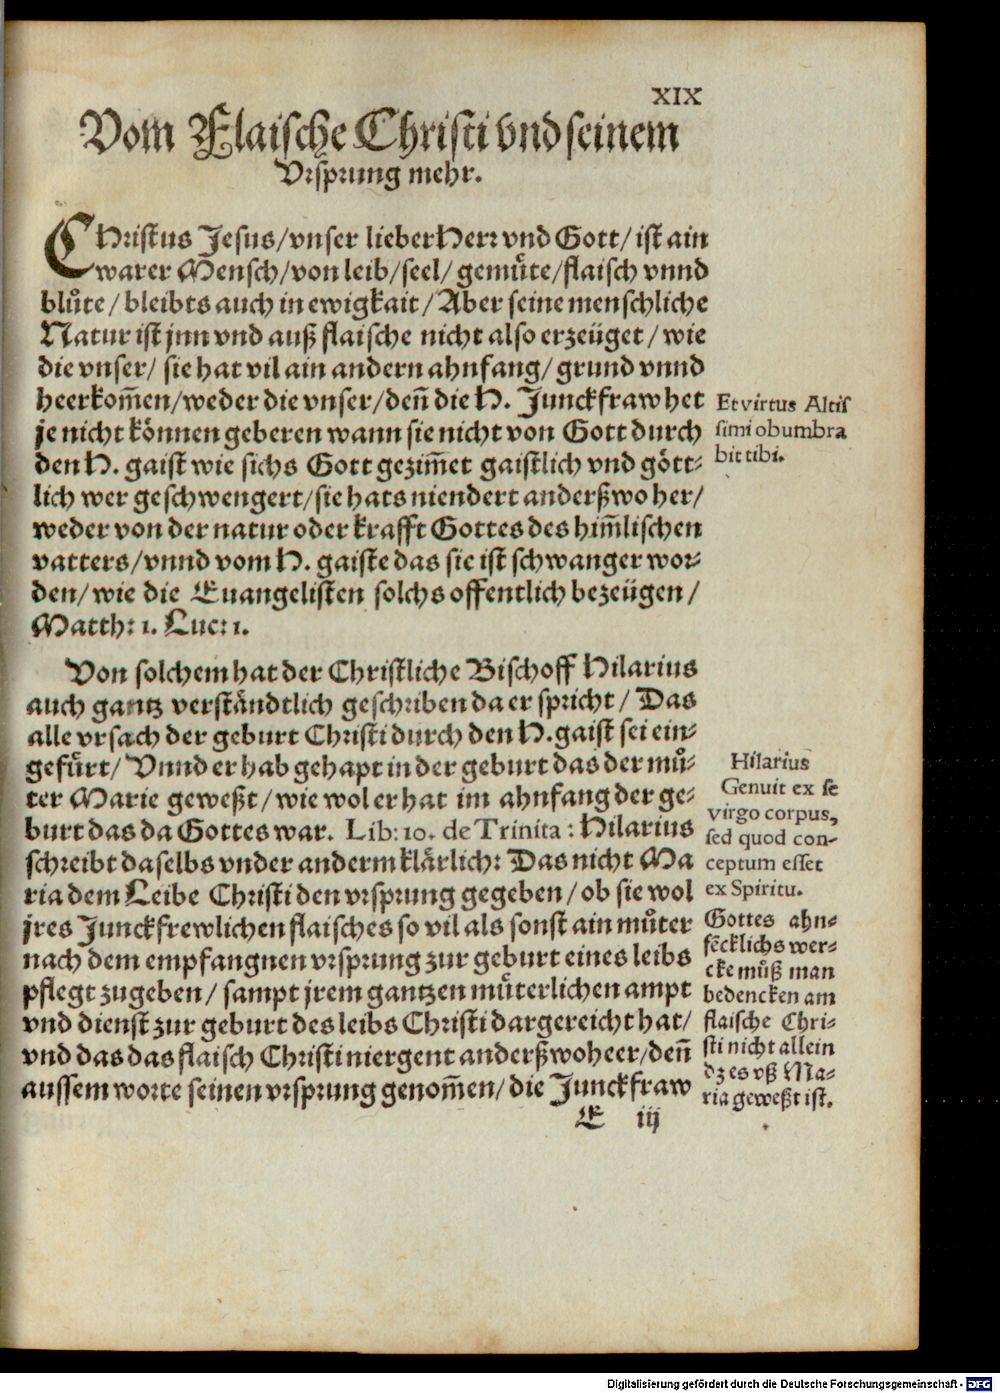 XIX
Vom Flaische Christi vnd seinem
Vrsprung mehr.
CHristus Jesus/vnser lieber Herr vnd Gott/ ist ain
warer Mensch/von leib/seel/ gemuͤte/flaisch vnnd
bluͦte/ bleibts auch in ewigkait/ Aber seine menschliche
Natur ist jnn vnd auß flaische nicht also erzeüget/ wie
die vnser/ sie hat vil ain andern ahnfang/ grund vnnd
heerkom̃en/weder die vnser/ den̄ die H. Junckfraw het
je nicht können geberen wann sie nicht von Gott durch
den H. gaist wie sichs Gott gezim̃et gaistlich vnd gött⸗
lich wer geschwengert/sie hats niendert anderßwo her/
weder von der natur oder krafft Gottes des him̃lischen
vatters/vnnd vom H. gaiste das sie ist schwanger wor⸗
den/ wie die Euangelisten solchs offentlich bezeügen/
Matth: 1. Luc: 1.
Et virtus Altis
simi obumbra
bit tibi.
Von solchem hat der Christliche Bischoff Hilarius
auch gantz verständtlich geschriben da er spricht/ Das
alle vrsach der geburt Christi durch den H. gaist sei ein⸗
gefuͤrt/ Vnnd er hab gehapt in der geburt das der muͦ⸗
ter Marie geweßt/ wie wol er hat im ahnfang der ge⸗
burt das da Gottes war. Lib: 10. de Trinita: Hilarius
schreibt daselbs vnder anderm klärlich: Das nicht Ma
ria dem Leibe Christi den vrsprung gegeben/ ob sie wol
jres Junckfrewlichen flaisches so vil als sonst ain muͦter
nach dem empfangnen vrsprung zur geburt eines leibs
pflegt zugeben/ sampt jrem gantzen muͤterlichen ampt
vnd dienst zur geburt des leibs Christi dargereicht hat/
vnd das das flaisch Christi niergent anderßwoheer/den̄
aussem worte seinen vrsprung genom̃en/ die Junckfraw
Hilarius
Genuit ex se
virgo corpus,
sed quod con-
ceptum esset
ex Spiritu.
Gottes ahn⸗
fecklichs wer⸗
cke muͦß man
bedencken am
flaische Chri⸗
sti nicht allein
dz es vß Ma⸗
ria geweßt ist.
E iij
Digitalisierung gefördert durch die Deutsche Forschungsgemeinschaft - DFG